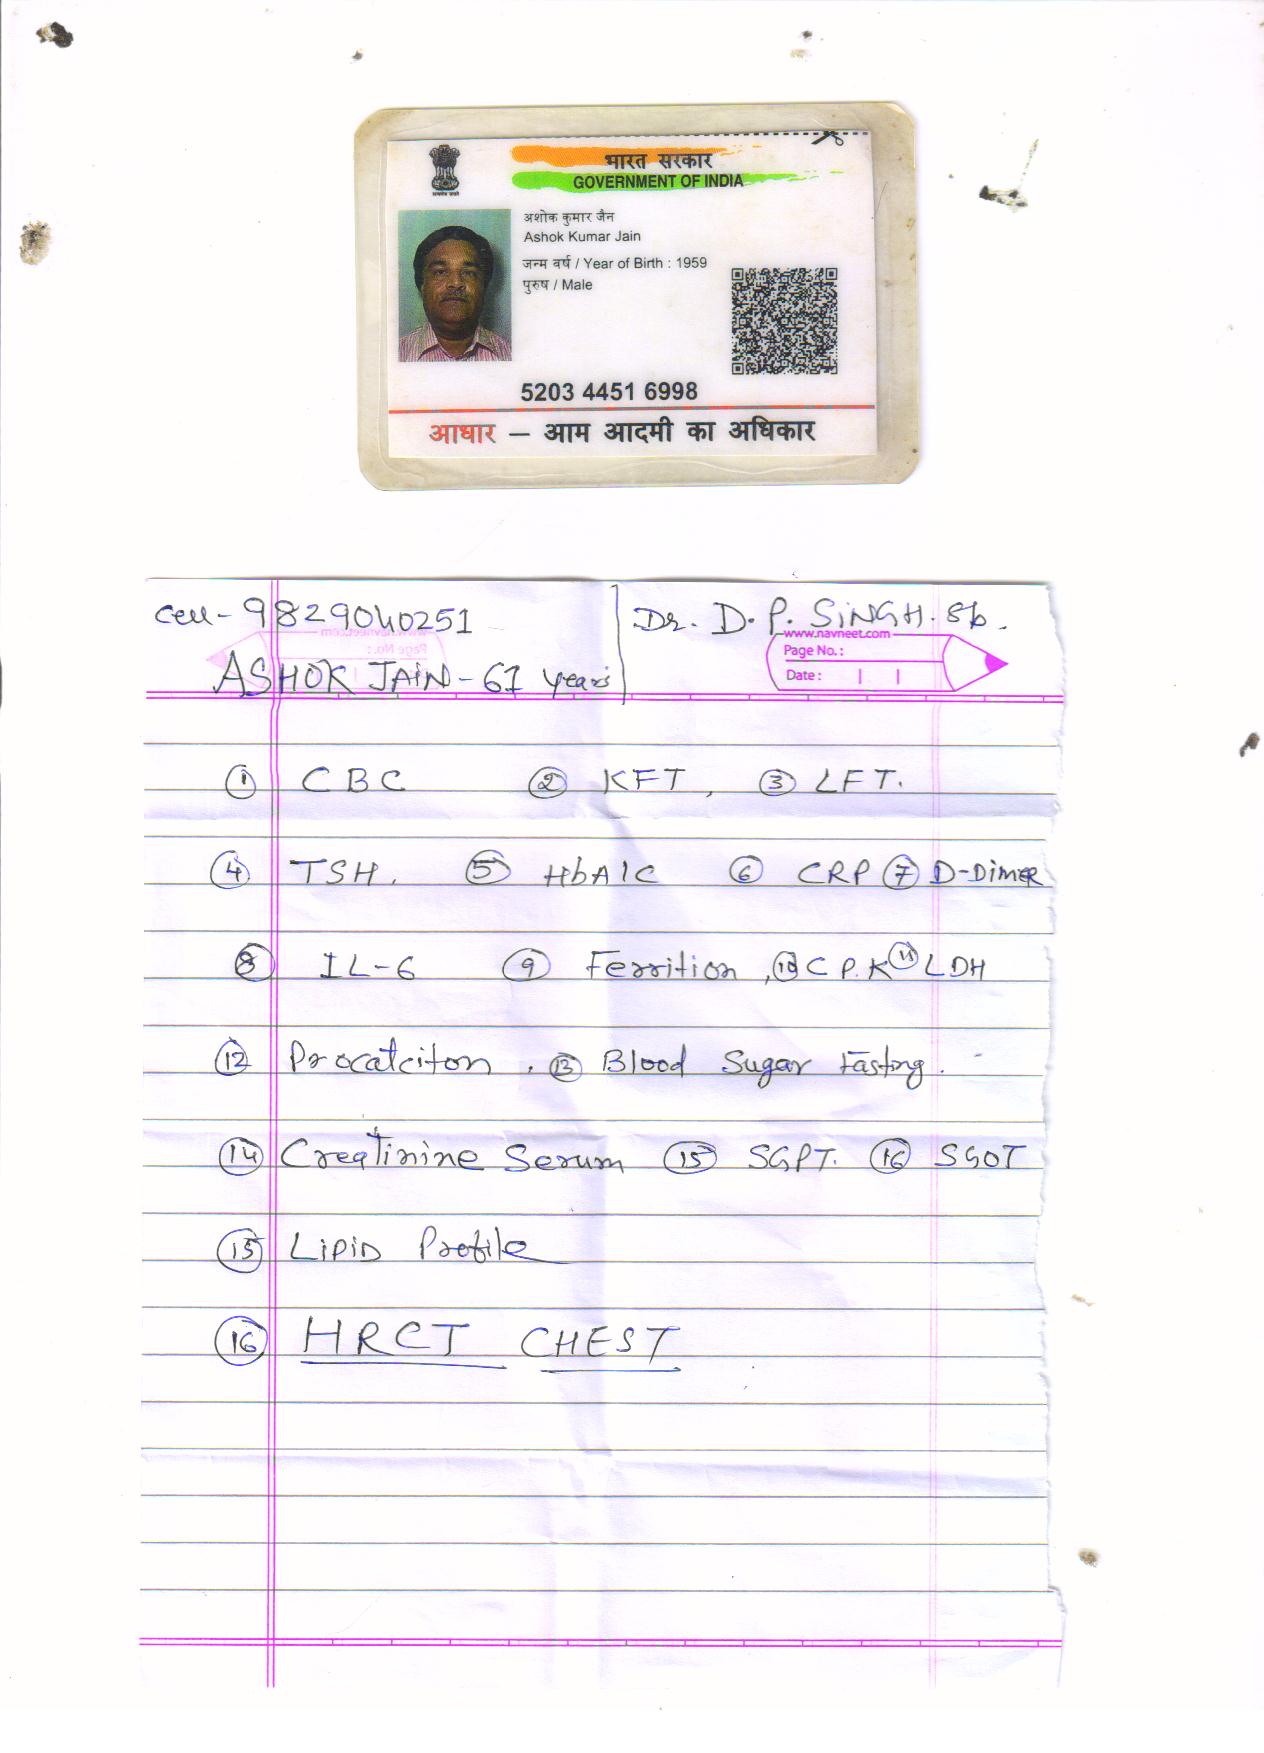 भारत सरकार
GOVERNMENT OF INDIA
अशोक कुमार जैन
Ashok Kumar Jain
जन्म वर्ष / Year of Birth : 1959
पुरुष / Male
5203 4451 6998
आधार – आम आदमी का अधिकार
Cell- 9829040251 Dr. D. P. SINGH. Sb.
www.navneet.com
Page No. :
Date :
ASHOK JAIN - 61 years
① CBC ② KFT, ③ LFT.
④ TSH. ⑤ HbA1C ⑥ CRP ⑦ D-Dimer
⑧ IL-6 ⑨ Ferrition, ⑩ C P. K ⑪ LDH
⑫ Procatciton, ⑬ Blood Sugar Fasting.
⑭ Creatinine Serum ⑮ SGPT. ⑯ SGOT
⑮ LIPID Profile
⑯ HRCT CHEST